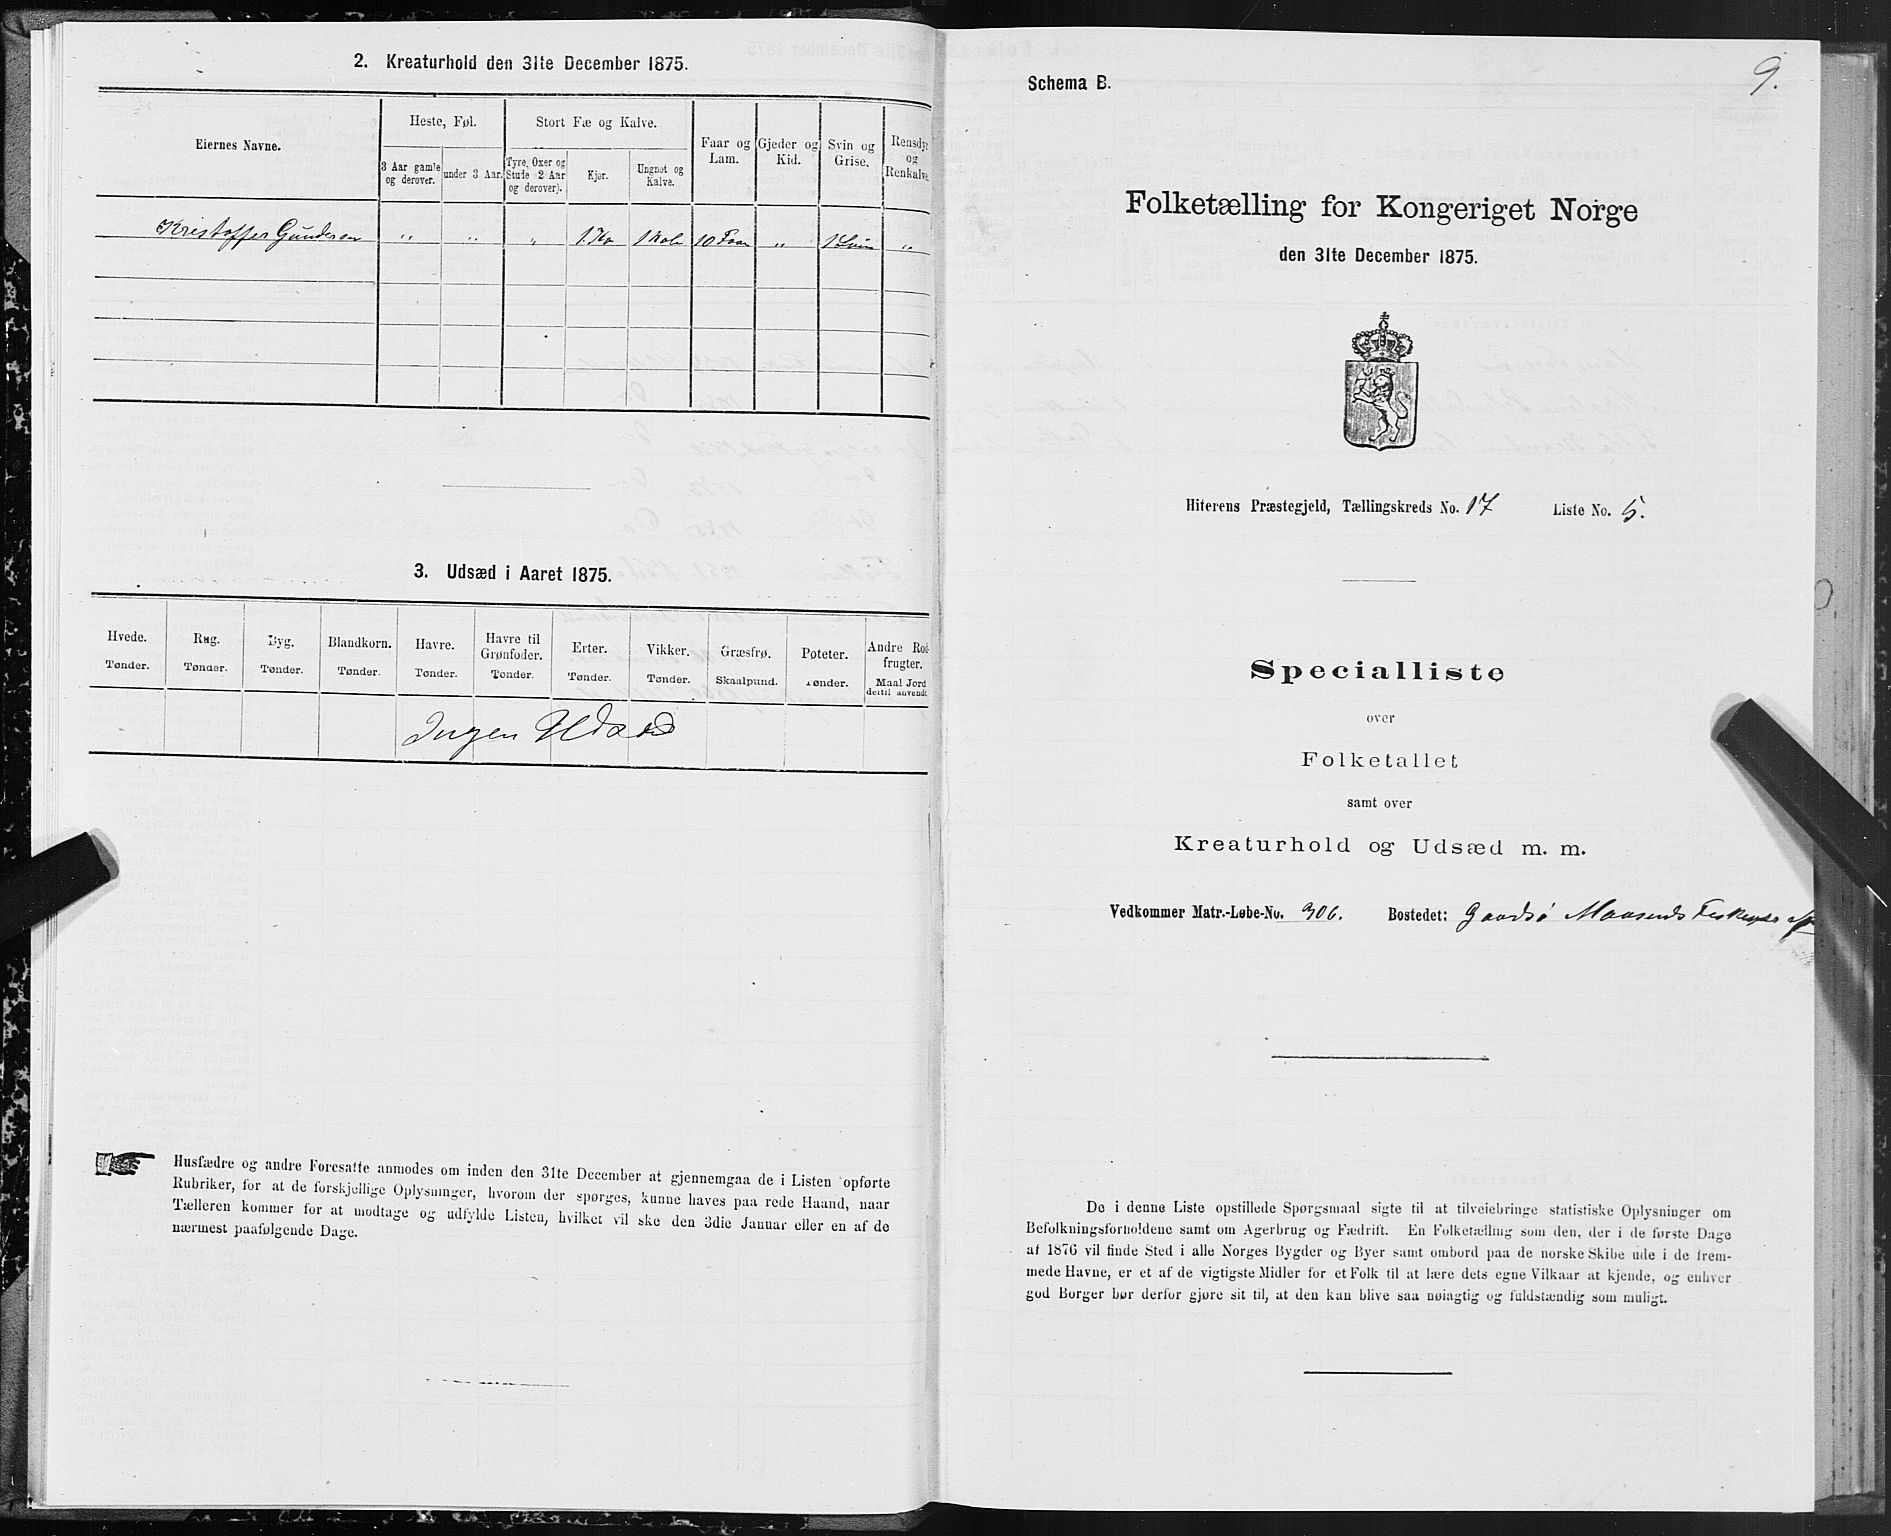 2. Kreaturhold den 31te December 1875.
Eiernes Navne.
Heste, Føl.
Stort Fæ og Kalve.
Faar og Lam.
Gjeder og Kid.
Svin og Grise.
Rensdyr og Renkalve.
3 Aar gamle og derover.
under 3 Aar.
Tyre, Oxer og Stude 2 Aar og derover).
Kjør.
Ungnøt og Kalve.
Kristoffer Gundersen „ „ „ 1 Ko 1 Kalv 10 Faar „ 1 Svin „
3. Udsæd i Aaret 1875.
Hvede. Tønder.
Rug. Tønder.
Byg. Tønder.
Blandkorn. Tønder.
Havre. Tønder.
Havre til Grønfoder. Tønder.
Erter. Tønder.
Vikker. Tønder.
Græsfrø. Skaalpund.
Poteter. Tønder.
Andre Rodfrugter. Maal Jord dertil anvendt
Ingen Udsæd
Husfædre og andre Foresatte anmodes om inden den 31te December at gjennemgaa de i Listen opførte
Rubriker, for at de forskjellige Oplysninger, hvorom der spørges, kunne haves paa rede Haand, naar
Tælleren kommer for at modtage og udfylde Listen, hvilket vil ske den 3die Januar eller en af de
nærmest paafølgende Dage.
9.
Schema B.
Folketælling for Kongeriget Norge
den 31te December 1875.
Hiterens Præstegjeld, Tællingskreds No. 17 Liste No. 5.
Specialliste
over
Folketallet
samt over
Kreaturhold og Udsæd m. m.
Vedkommer Matr.-Løbe-No. 306. Bostedet: Gaardsø
De i denne Liste opstillede Spørgsmaal sigte til at tilveiebringe statistiske Oplysninger om
Befolkningsforholdene samt om Agerbrug og Fædrift. En Folketælling som den, der i de første Dage
af 1876 vil finde Sted i alle Norges Bygder og Byer samt ombord paa de norske Skibe ude i de frem-
mede Havne, er et af de vigtigste Midler for et Folk til at lære dets egne Vilkaar at kjende, og enhver
god Borger bør derfor gjøre sit til, at den kan blive saa nøiagtig og fuldstændig som muligt.